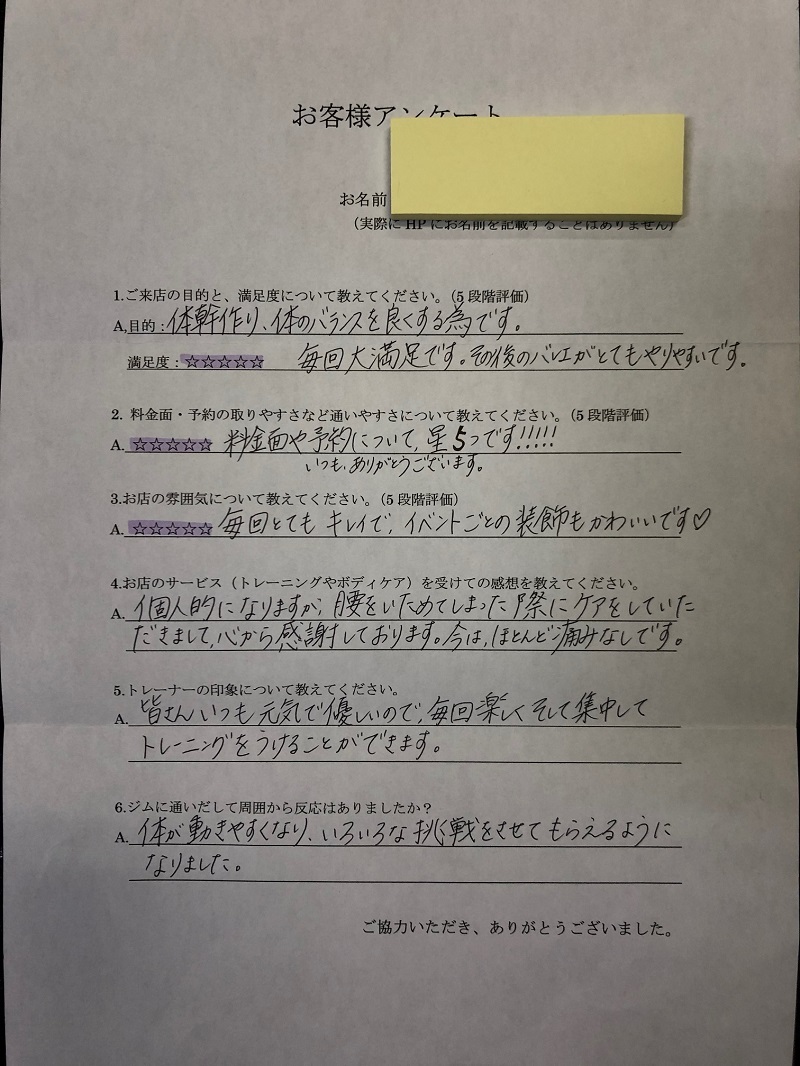 お客様アンケート
お名前
（実際に HP にお名前を記載することはありません）
1.ご来店の目的と、満足度について教えてください。（5 段階評価）
A,目的：体幹作り、体のバランスを良くする為です。
満足度：☆☆☆☆☆ 毎回大満足です。その後のバレエがとてもやりやすいです。
2. 料金面・予約の取りやすさなど通いやすさについて教えてください。（5 段階評価）
A. ☆☆☆☆☆ 料金面や予約について、星5つです!!!!!
いつも、ありがとうございます。
3.お店の雰囲気について教えてください。（5 段階評価）
A. ☆☆☆☆☆ 毎回とても キレイで、イベントごとの装飾もかわいいです♡
4.お店のサービス（トレーニングやボディケア）を受けての感想を教えてください。
A. 個人的になりますが、腰をいためてしまった際にケアをしていた
だきまして、心から感謝しております。今は、ほとんど痛みなしです。
5.トレーナーの印象について教えてください。
A. 皆さんいつも元気で優しいので、毎回楽しくそして集中して
トレーニングをうけることができます。
6.ジムに通いだして周囲から反応はありましたか？
A. 体が動きやすくなり、いろいろな挑戦をさせてもらえるように
なりました。
ご協力いただき、ありがとうございました。